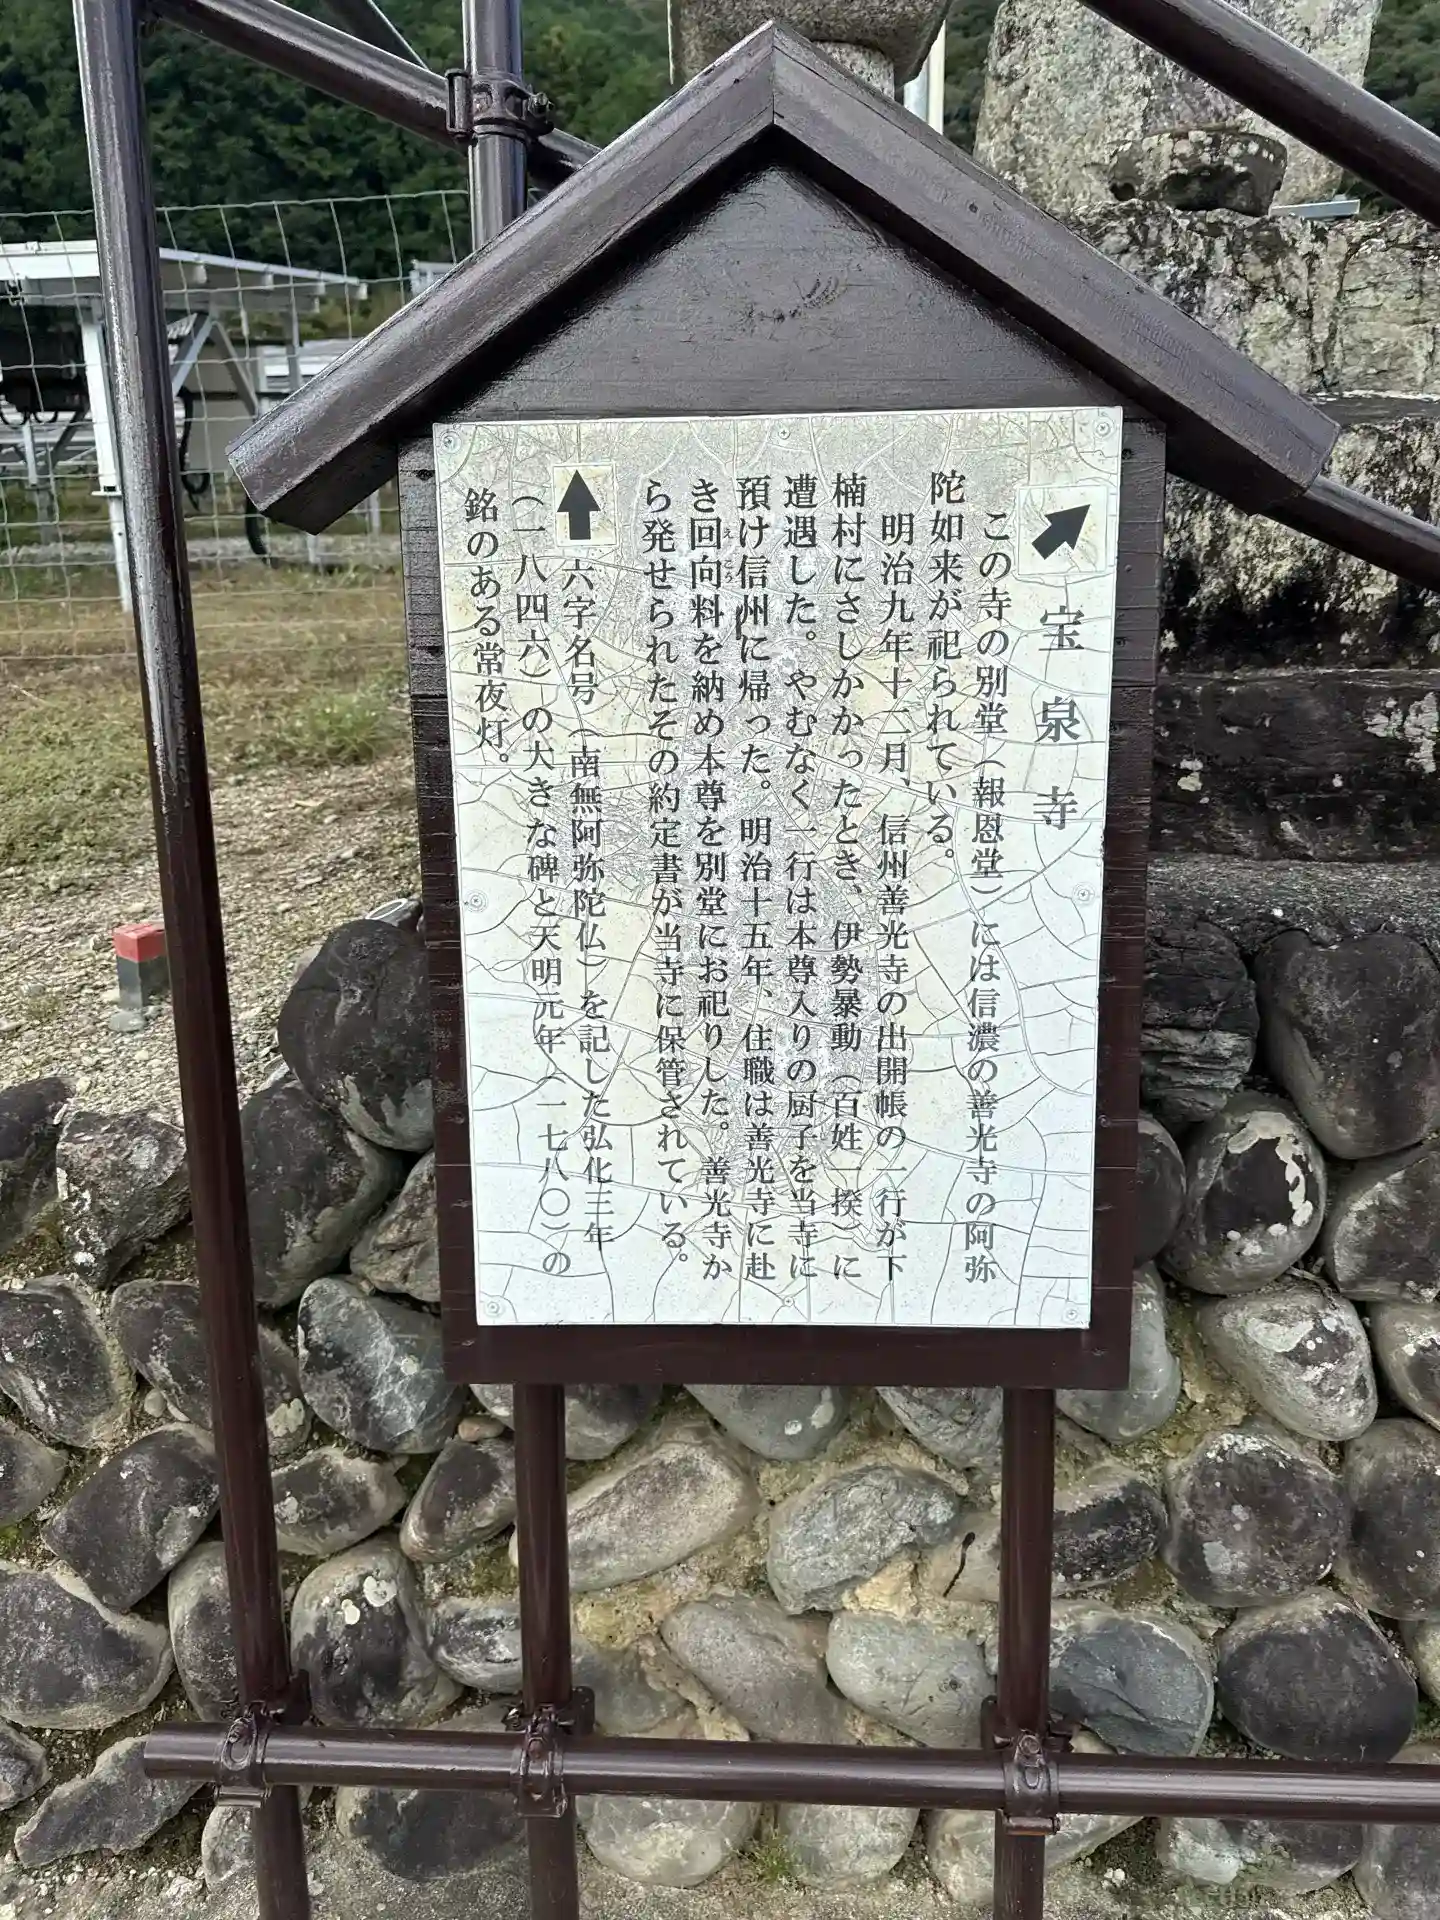 宝泉寺
この寺の別堂（報恩堂）には信濃の善光寺の阿弥
陀如来が祀られている。
明治九年十二月、信州善光寺の出開帳の一行が下
楠村にさしかかったとき、伊勢暴動（百姓一揆）に
遭遇した。やむなく一行は本尊入りの厨子を当寺に
預け信州に帰った。明治十五年、住職は善光寺に赴
き回向料を納め本尊を別堂にお祀りした。善光寺か
ら発せられたその約定書が当寺に保管されている。
六字名号（南無阿弥陀仏）を記した弘化三年
（一八四六）の大きな碑と天明元年（一七八〇）の
銘のある常夜灯。